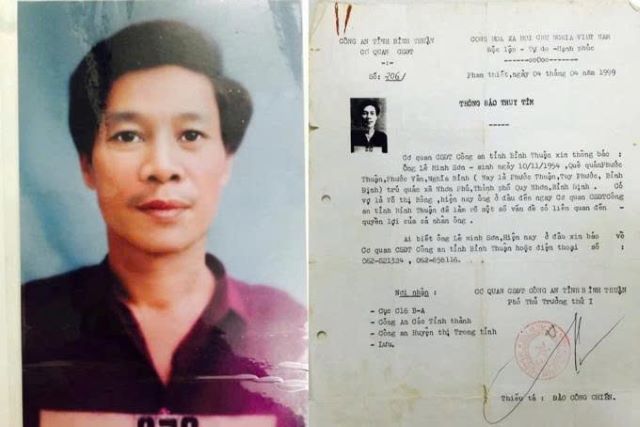 CÔNG AN TỈNH BÌNH THUẬN
CƠ QUAN CSĐT
-:-
Số: 206/
CỘNG HÒA XÃ HỘI CHỦ NGHĨA VIỆT NAM
Độc lập - Tự do - Hạnh phúc
------ooOoo------
Phan thiết, ngày 04 tháng 04 năm 1999
THÔNG BÁO TRUY TÌM
-----
Cơ quan CSĐT Công an tỉnh Bình Thuận xin thông báo :
Ông Lê Minh Sơn - sinh ngày 10/11/1954 ,Quê quán Phước
Thuận,Phước Vân,Nghĩa Bình ( Nay là Phước Thuận,Tuy Phước, Bình
Định) trú quán xã Nhơn Phú,Thành phố Quy Nhơn,Bình Định . Có
vợ là Võ thị Hồng ,hiện nay ông ở đâu đến ngay Cơ quan CSĐT Công
an tỉnh Bình Thuận để làm rõ một số vấn đề có liên quan đến -
quyền lợi của cá nhân ông .
Ai biết ông Lê minh Sơn,Hiện nay ở đâu xin báo về
Cơ quan CSĐT Công an tỉnh Bình Thuận hoặc điện thoại số :
062-821324 , 062-858116.
Nơi nhận :
- Cục C16 B-A
- Công An Các Tỉnh thành
- Công an Huyện thị Trong tỉnh
- Lưu.
CƠ QUAN CSĐT CÔNG AN TỈNH BÌNH THUẬN
Phó Thủ Trưởng thứ I
Thiếu tá : ĐÀO CÔNG CHIẾN.